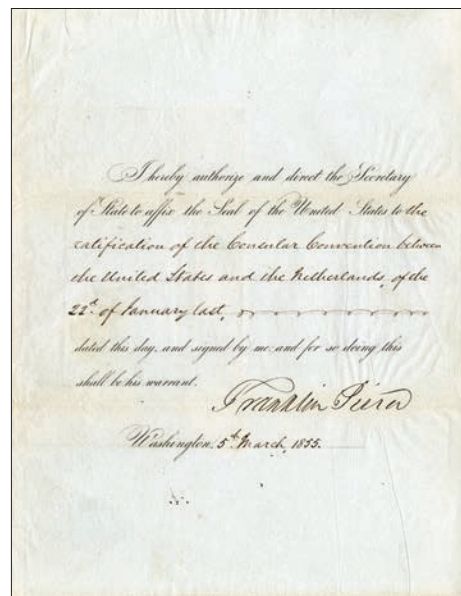 I hereby authorize and direct the Secretary
of State to affix the Seal of the United States to the
ratification of the Consular Convention between
the United States and the Netherlands, of the
22d. of January last,
dated this day, and signed by me and for so doing this
shall be his warrant.
Franklin Pierce
Washington, 5th March, 1855.